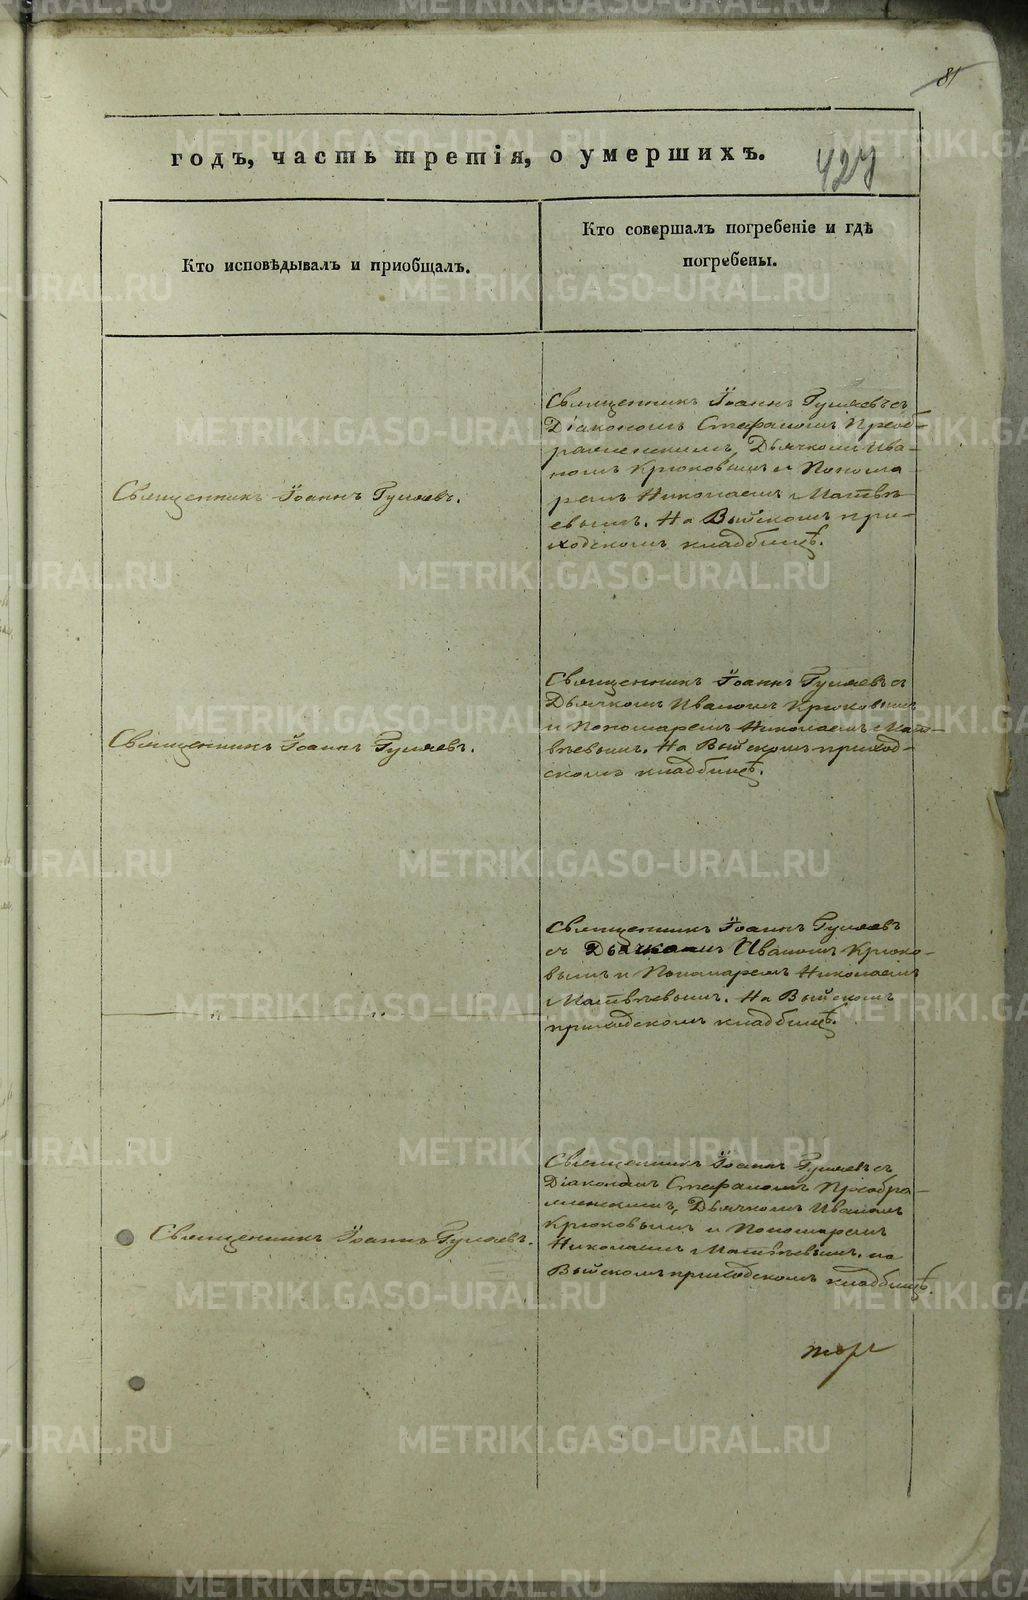 81
годъ, часть третія, о умершихъ.
427
Кто исповѣдывалъ и пріобщалъ.
Кто совершалъ погребеніе и гдѣ
погребены.
Священникъ Іоаннъ Гуляевъ.
Священникъ Іоаннъ Гуляевъ съ
Діакономъ Стефаномъ Преоб-
раженскимъ, Дьячкомъ Ива-
номъ Крюковымъ и Понома
ремъ Николаемъ Матвѣ
евымъ. На Выйскомъ при-
ходскомъ кладбищѣ.
Священникъ Іоаннъ Гуляевъ.
Священникъ Іоаннъ Гуляевъ съ
Дьячкомъ Иваномъ Крюковымъ
и Пономаремъ Николаемъ Мат-
вѣевымъ. На Выйскомъ приход-
скомъ кладбищѣ.
Священникъ Іоаннъ Гуляевъ
съ Дьячкомъ Иваномъ Крюко-
вымъ и Пономаремъ Николаемъ
Матвѣевымъ. На Выйскомъ
приходскомъ кладбищѣ.
Священникъ Іоаннъ Гуляевъ.
Священникъ Іоаннъ Гуляевъ съ
Діакономъ Стефаномъ Преобра-
женскимъ, Дьячкомъ Иваномъ
Крюковымъ и Пономаремъ
Николаемъ Матвѣевымъ. на
Выйскомъ приходскомъ кладбищѣ.
METRIKI.GASO-URAL.RU